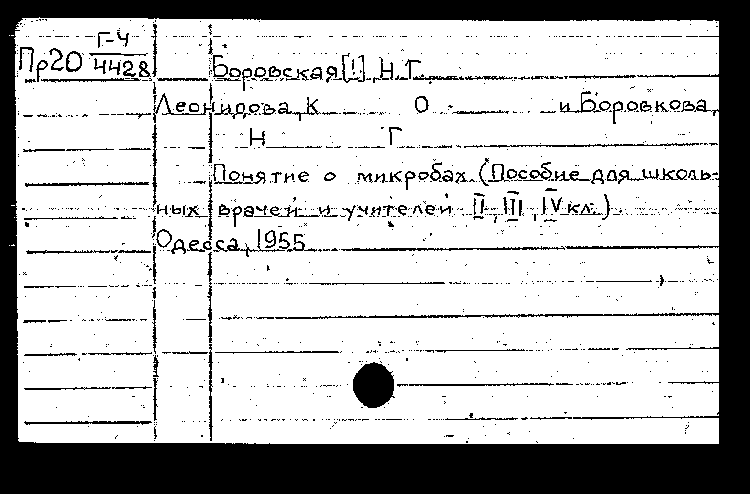 Пр20 Г-4/4428
Боровская[!], Н.Г.
Леонидова, К О. и Боровкова,
Н Г
Понятие о микробах. (Пособие для школь-
ных врачей и учителей II, III, IV кл.)
Одесса, 1955